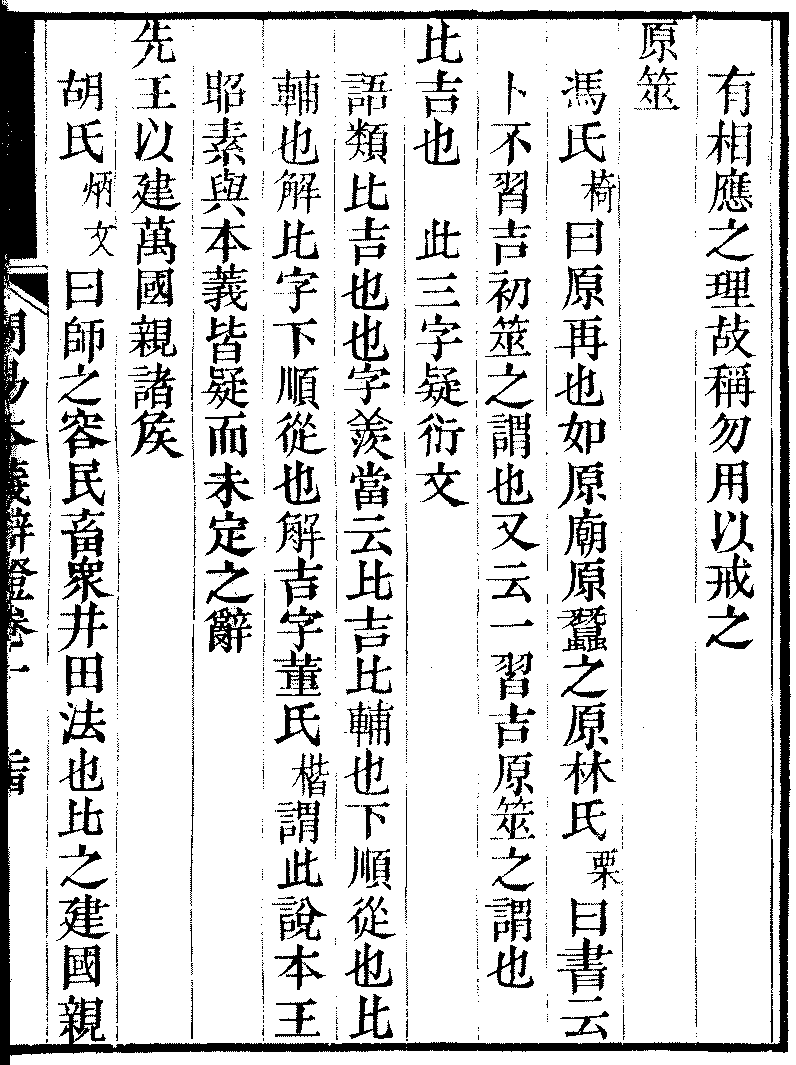 有相應之理故稱勿用以戒之
原筮
馮氏椅曰原再也如原廟原蠶之原林氏栗曰書云
卜不習吉初筮之謂也又云一習吉原筮之謂也
比吉也　此三字疑衍文
語類比吉也也字羨當云比吉比輔也下順從也比
輔也解比字下順從也解吉字董氏楷謂此說本王
昭素與本義皆疑而未定之辭
先王以建萬國親諸矦
胡氏炳文曰師之容民畜衆井田法也比之建國親